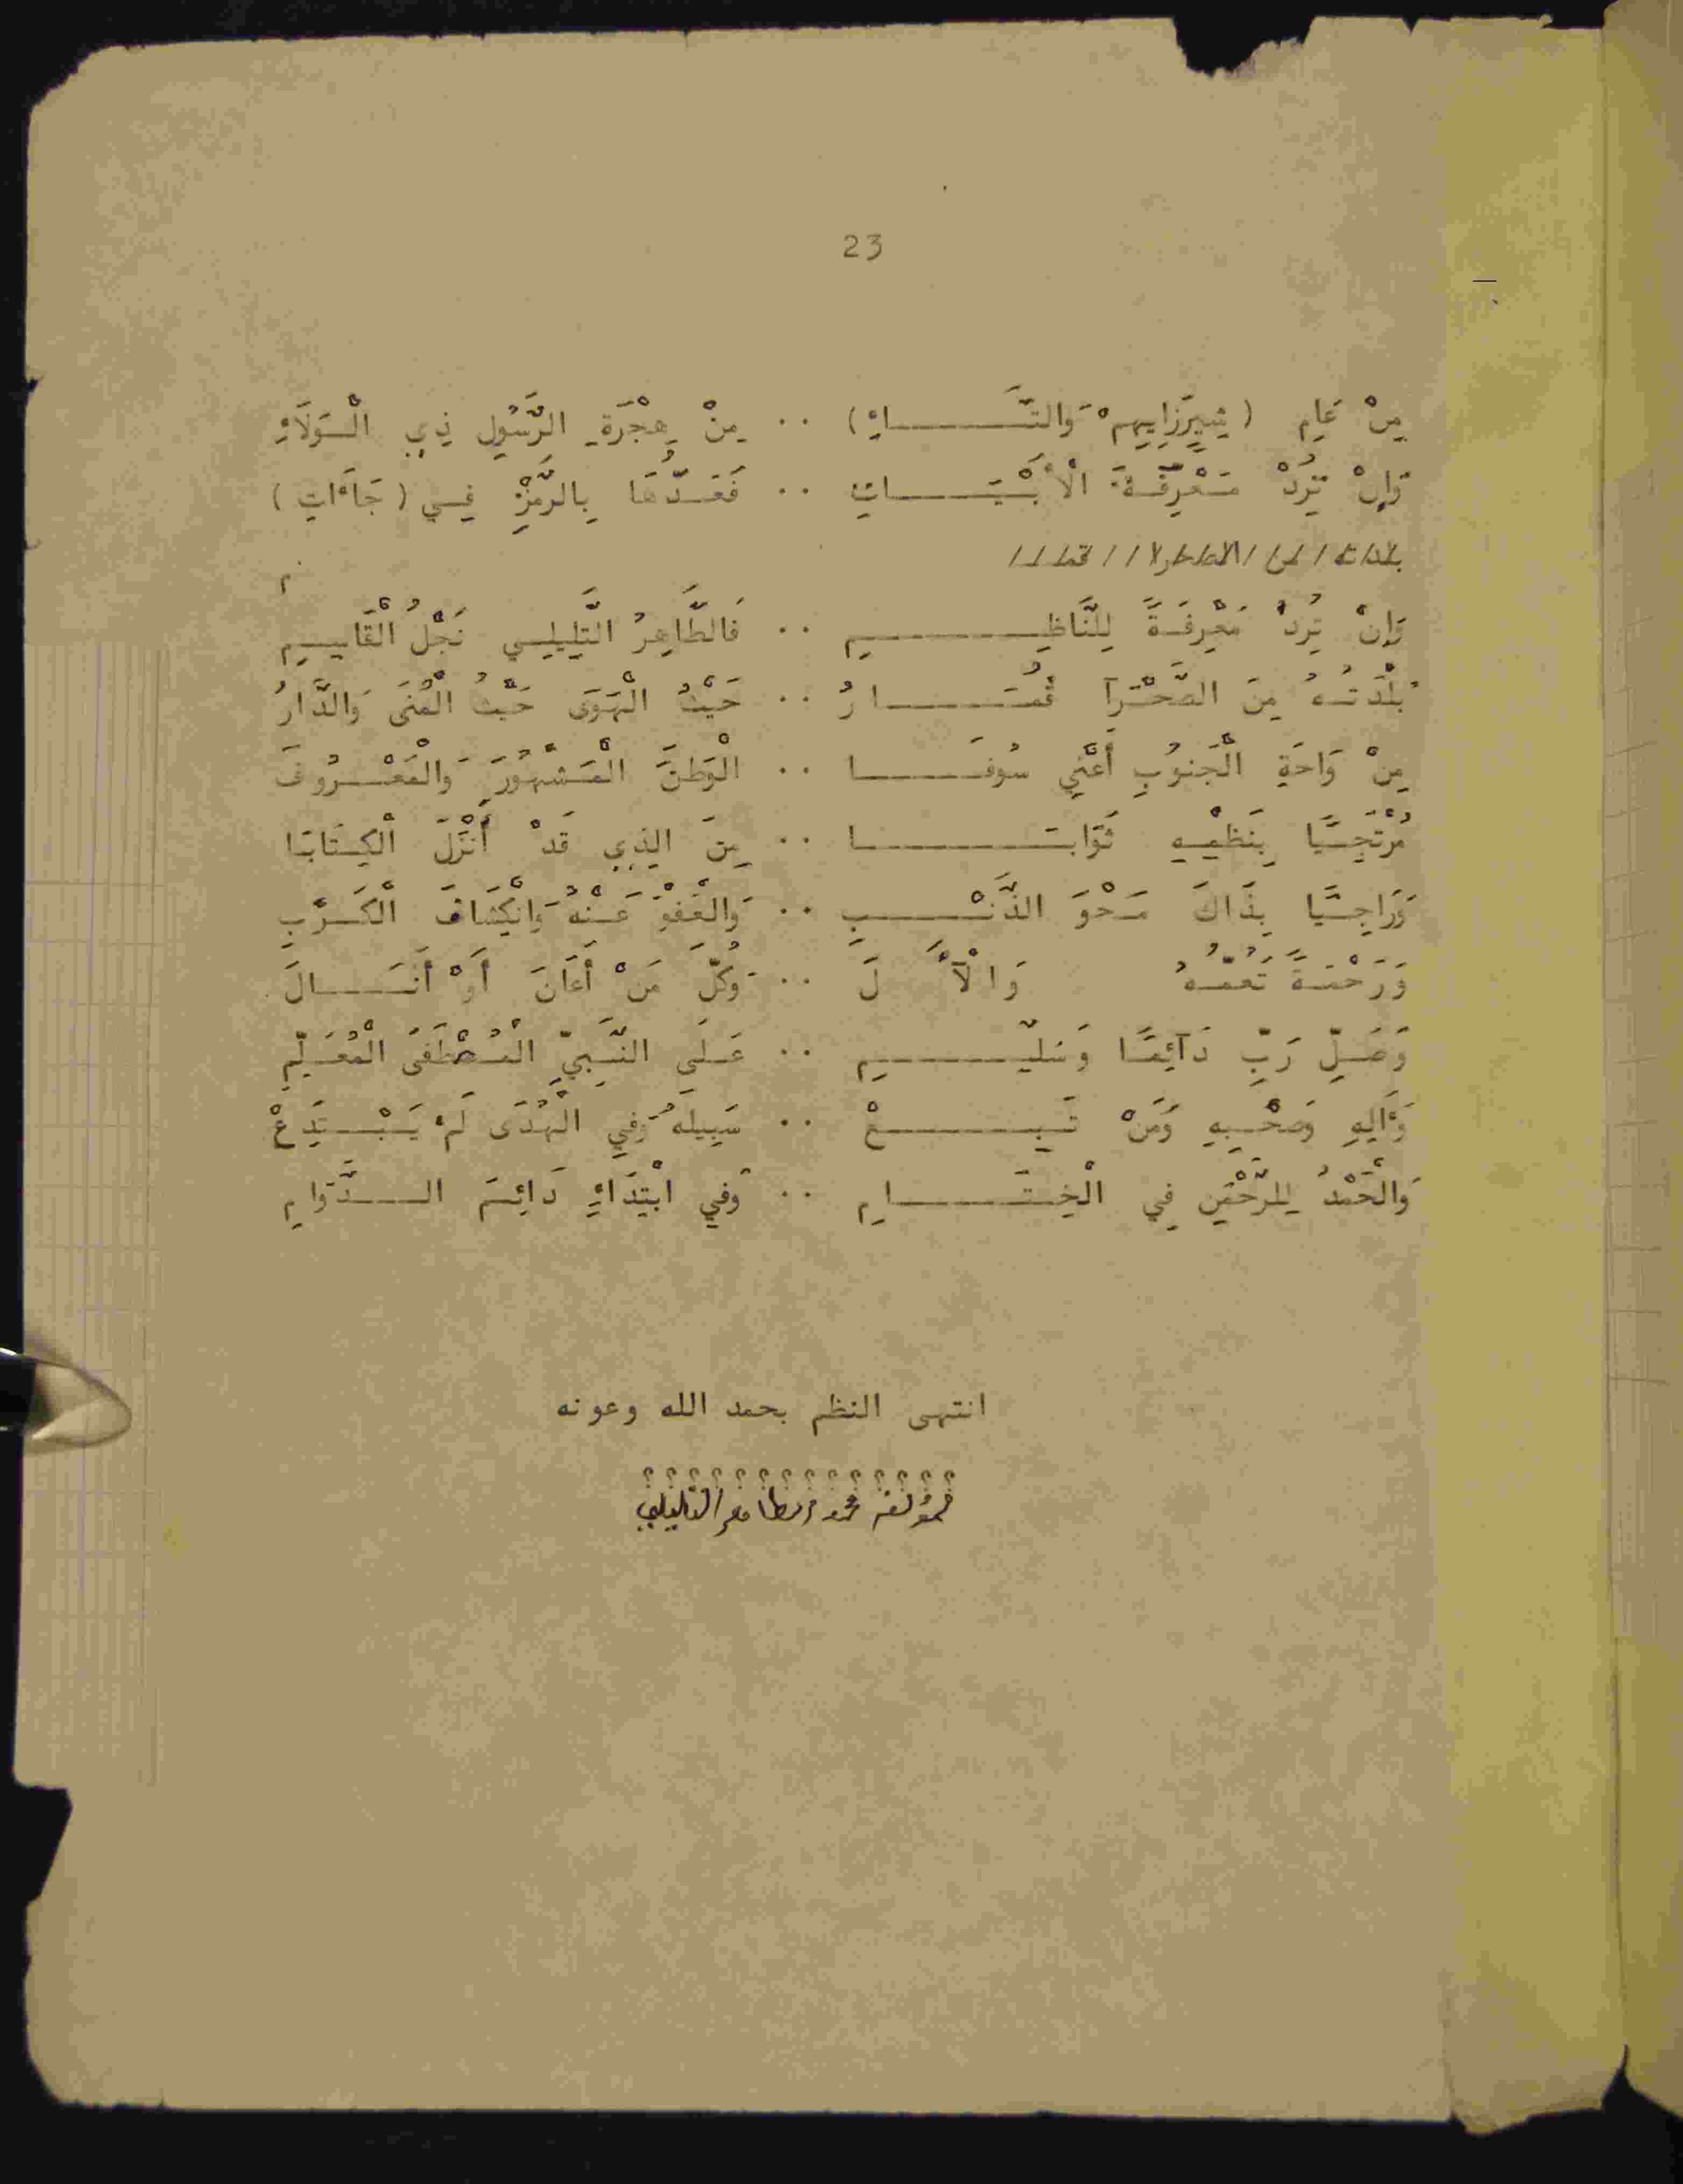 23
مِنْ عَامِ ( وَالتَّـــاءِ) .. مِنْ هِجْرَةِ الرَّسُولِ ذِي الْـوَلَاءِ
وَإِنْ تُرِدْ مَـعْرِفَـةَ الْأَبْـيَـــاتِ .. فَعَـدُّهَا بِالرَّمْزِ فِـي ( جَاءَاتِ )
وَإِنْ تُرِدْ مَعْرِفَـةً لِلنَّاظِـــمِ .. فَالطَّاهِرُ التَّلِيلِـي نَجْلُ الْقَاسِـمِ
بَلْدَتُـهُ مِنَ الصَّحْـرَآ قُمَـــارُ .. حَيْثُ الْهَوَى حَيْثُ الْمُنَى وَالدَّارُ
مِنْ وَاحَةِ الْجَنُوبِ أَعْنِي سُوفَـــا .. الْوَطَنَ الْمَـشْهُورَ وَالْمَعْـرُوفَ
مُرْتَجِـيًا بِنَظْمِـهِ ثَوَابَـــا .. مِنَ الِذِي قَدْ أَنْزَلَ الْكِـتَابَـا
وَرَاجِـيًا بِذَاكَ مَـحْوَ الذَّنْـــبِ .. وَالْعَفْوَ عَـنْهُ وَانْكِشَافَ الْكَـرْبِ
وَرَحْمَـةً تَعُمُّـهُ وَالْآ لَ .. وَكُلَّ مَنْ أَعَانَ أَوْ أَنَـــالَ
وَصَـلِّ رَبِّ دَآئِمًـا وَسَلِّـــمِ .. عَـلَى النَّـبِيِّ الْمُـصْطَفَى الْمُعَـلِّمِ
وَءَالِهِ وَصَحْـبِهِ وَمَنْ تَـبِـــعْ .. سَبِيلَهُ وَفِي الْهُدَى لَمْ يَـبْـتَدِعْ
وَالْحَمْدُ لِلرَّحْمَنِ فِي الْخِـتَـــامِ .. وَفِي ابْتِدَاءٍ دَائِـمَ الـــدَّوَامِ
انتهى النظم بحمد الله وعونه
التليلي